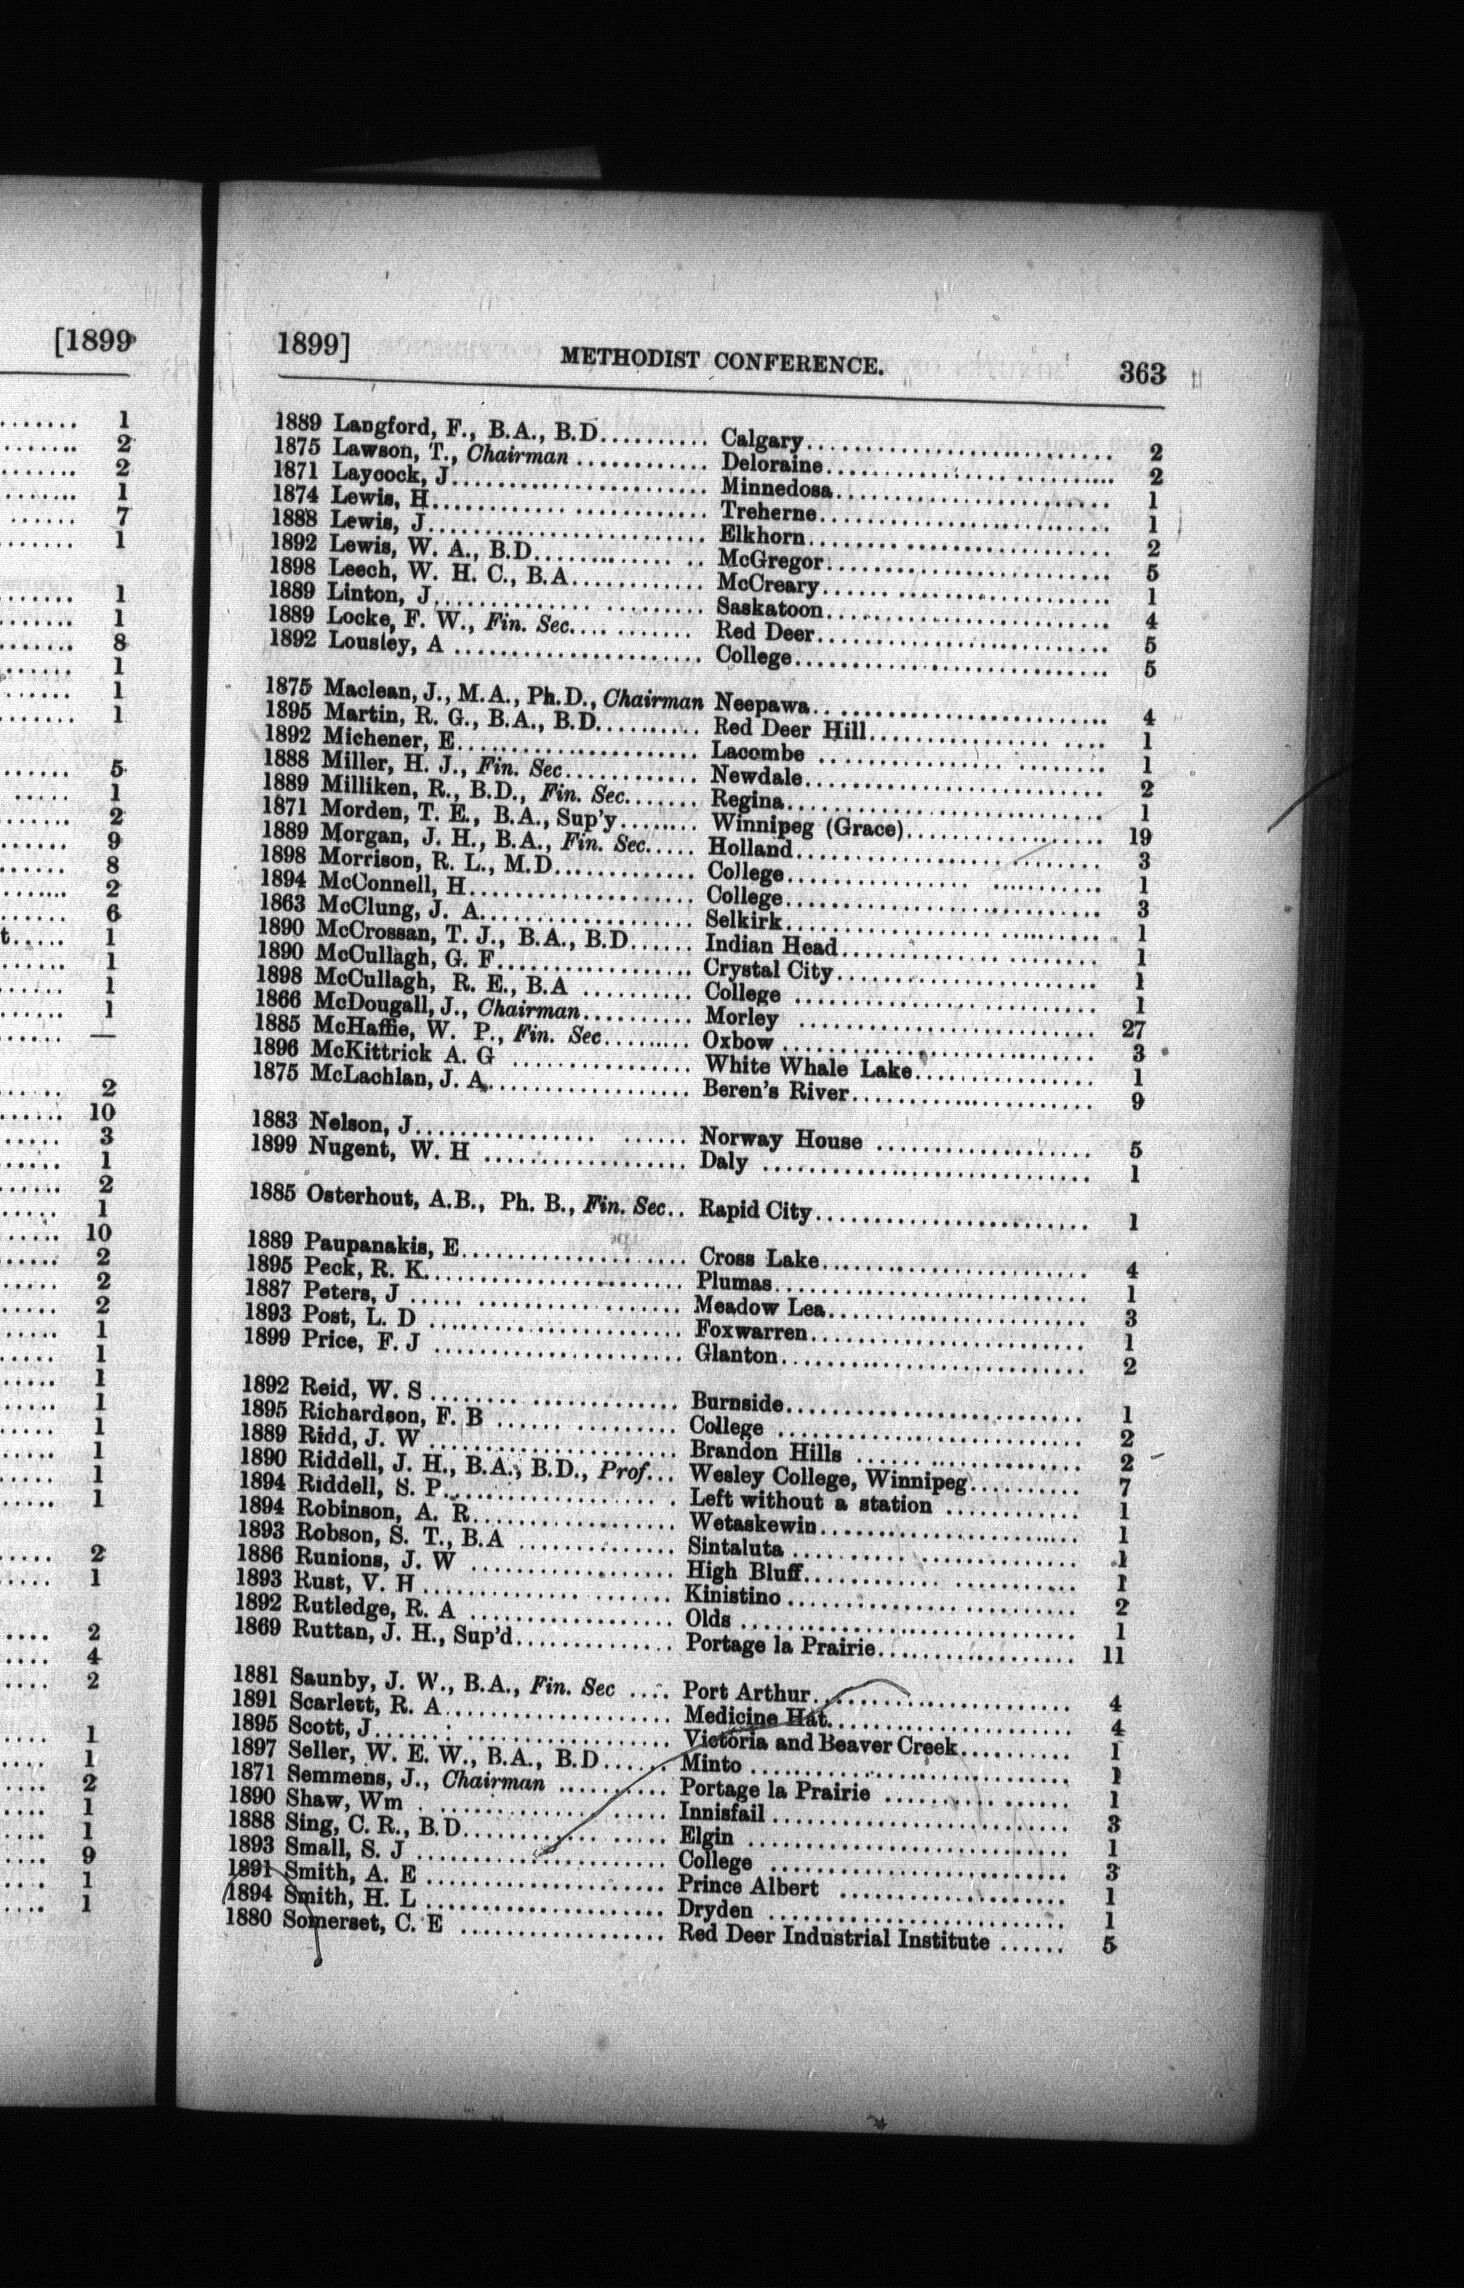 [1899
1
2
2
1
7
1
1
1
8
1
1
1
5
1
2
9
8
2
6
t..... 1
1
1
1
—
2
10
3
1
2
1
10
2
2
2
1
1
1
1
1
1
1
1
2
1
2
4
2
1
1
2
1
1
9
1
1
1899] METHODIST CONFERENCE. 363
1889 Langford, F., B.A., B.D......... Calgary.......................... 2
1875 Lawson, T., Chairman ............ Deloraine........................ 2
1871 Laycock, J...................... Minnedosa....................... 1
1874 Lewis, H........................ Treherne......................... 1
1888 Lewis, J........................ Elkhorn.......................... 2
1892 Lewis, W. A., B.D............... McGregor........................ 5
1898 Leech, W. H. C., B.A............ McCreary........................ 1
1889 Linton, J....................... Saskatoon........................ 4
1889 Locke, F. W., Fin. Sec.......... Red Deer......................... 5
1892 Lousley, A ..................... College.......................... 5
1875 Maclean, J., M.A., Ph.D., Chairman Neepawa......................... 4
1895 Martin, R. G., B.A., B.D......... Red Deer Hill.................... 1
1892 Michener, E..................... Lacombe ......................... 1
1888 Miller, H. J., Fin. Sec........... Newdale.......................... 2
1889 Milliken, R., B.D., Fin. Sec....... Regina........................... 1
1871 Morden, T. E., B.A., Sup'y........ Winnipeg (Grace)................. 19
1889 Morgan, J. H., B.A., Fin. Sec..... Holland.......................... 3
1898 Morrison, R. L., M.D............ College.......................... 1
1894 McConnell, H.................... College.......................... 3
1863 McClung, J. A................... Selkirk.......................... 1
1890 McCrossan, T. J., B.A., B.D...... Indian Head...................... 1
1890 McCullagh, G. F................. Crystal City..................... 1
1898 McCullagh, R. E., B.A .......... College ......................... 1
1866 McDougall, J., Chairman.......... Morley .......................... 27
1885 McHaffie, W. P., Fin. Sec........ Oxbow ........................... 3
1896 McKittrick A. G ................ White Whale Lake................. 1
1875 McLachlan, J. A................. Beren's River.................... 9
1883 Nelson, J....................... Norway House .................... 5
1899 Nugent, W. H ................... Daly ............................ 1
1885 Osterhout, A.B., Ph. B., Fin. Sec.. Rapid City....................... 1
1889 Paupanakis, E................... Cross Lake....................... 4
1895 Peck, R. K...................... Plumas........................... 1
1887 Peters, J ...................... Meadow Lea...................... 3
1893 Post, L. D ..................... Foxwarren........................ 1
1899 Price, F. J .................... Glanton.......................... 2
1892 Reid, W. S ..................... Burnside......................... 1
1895 Richardson, F. B ............... College ......................... 2
1889 Ridd, J. W ..................... Brandon Hills ................... 2
1890 Riddell, J. H., B.A., B.D., Prof... Wesley College, Winnipeg.......... 7
1894 Riddell, S. P................... Left without a station ........... 1
1894 Robinson, A. R.................. Wetaskewin....................... 1
1893 Robson, S. T., B.A ............. Sintaluta ....................... 1
1886 Runions, J. W .................. High Bluff....................... 1
1893 Rust, V. H ..................... Kinistino ....................... 2
1892 Rutledge, R. A ................. Olds ............................ 1
1869 Ruttan, J. H., Sup'd............. Portage la Prairie................ 11
1881 Saunby, J. W., B.A., Fin. Sec .... Port Arthur...................... 4
1891 Scarlett, R. A.................. Medicine Hat..................... 4
1895 Scott, J........................ Victoria and Beaver Creek.......... 1
1897 Seller, W. E. W., B.A., B.D...... Minto ........................... 1
1871 Semmens, J., Chairman .......... Portage la Prairie ............... 1
1890 Shaw, Wm ....................... Innisfail ....................... 3
1888 Sing, C. R., B.D................ Elgin ........................... 1
1893 Small, S. J .................... College ......................... 3
1891 Smith, A. E .................... Prince Albert ................... 1
1894 Smith, H. L .................... Dryden .......................... 1
1880 Somerset, C. E ................. Red Deer Industrial Institute ...... 5